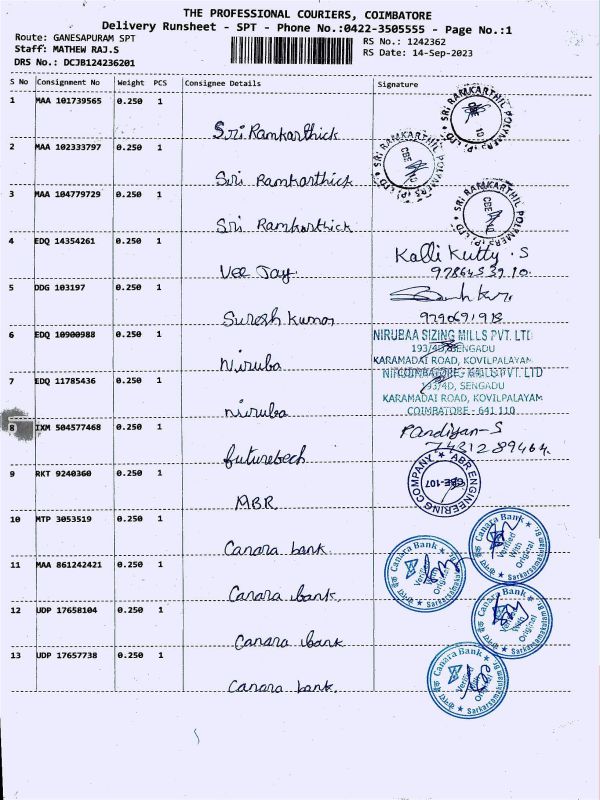 THE PROFESSIONAL COURIERS, COIMBATORE
Delivery Runsheet - SPT - Phone No.:0422-3505555 - Page No.:1
Route: GANESAPURAM SPT
Staff: MATHEW RAJ.S
DRS No.: DCJB124236201
RS No.: 1242362
RS Date: 14-Sep-2023
S No Consignment No Weight PCS Consignee Details Signature
1 MAA 101739565 0.250 1
Sri Ramkarthick
SRI RAMKARTHIL POLYMERS (P) LTD
2 MAA 102333797 0.250 1
Sri Ramkarthick
SRI RAMKARTHIL POLYMERS (P) LTD CBE
3 MAA 104779729 0.250 1
Sri Ramkarthick
SRI RAMKARTHIL POLYMERS (P) LTD CBE
4 EDQ 14354261 0.250 1
Vee Jay
Kalli Kutty . S
9786453910
5 DDG 103197 0.250 1
Suresh Kumar
6 EDQ 10900988 0.250 1
Niruba
NIRUBAA SIZING MILLS PVT. LTD
193/4D, SENGADU
KARAMADAI ROAD, KOVILPALAYAM
7 EDQ 11785436 0.250 1
niruba
NIRUBAA SIZING MILLS PVT. LTD
193/4D, SENGADU
KARAMADAI ROAD, KOVILPALAYAM
COIMBATORE - 641 110
8 IXM 504577468 0.250 1
futuretech
Pandiyan - S
7431289464.
9 RKT 9240360 0.250 1
ABR
ABR ENGINEERING COMPANY CBE-107
10 MTP 3053519 0.250 1
Canara bank
Canara Bank Verified With Original
11 MAA 861242421 0.250 1
Canara bank.
Canara Bank Verified With Original
12 UDP 17658104 0.250 1
Canara bank
Canara Bank Verified With Original
13 UDP 17657738 0.250 1
Canara bank.
Canara Bank Verified With Original